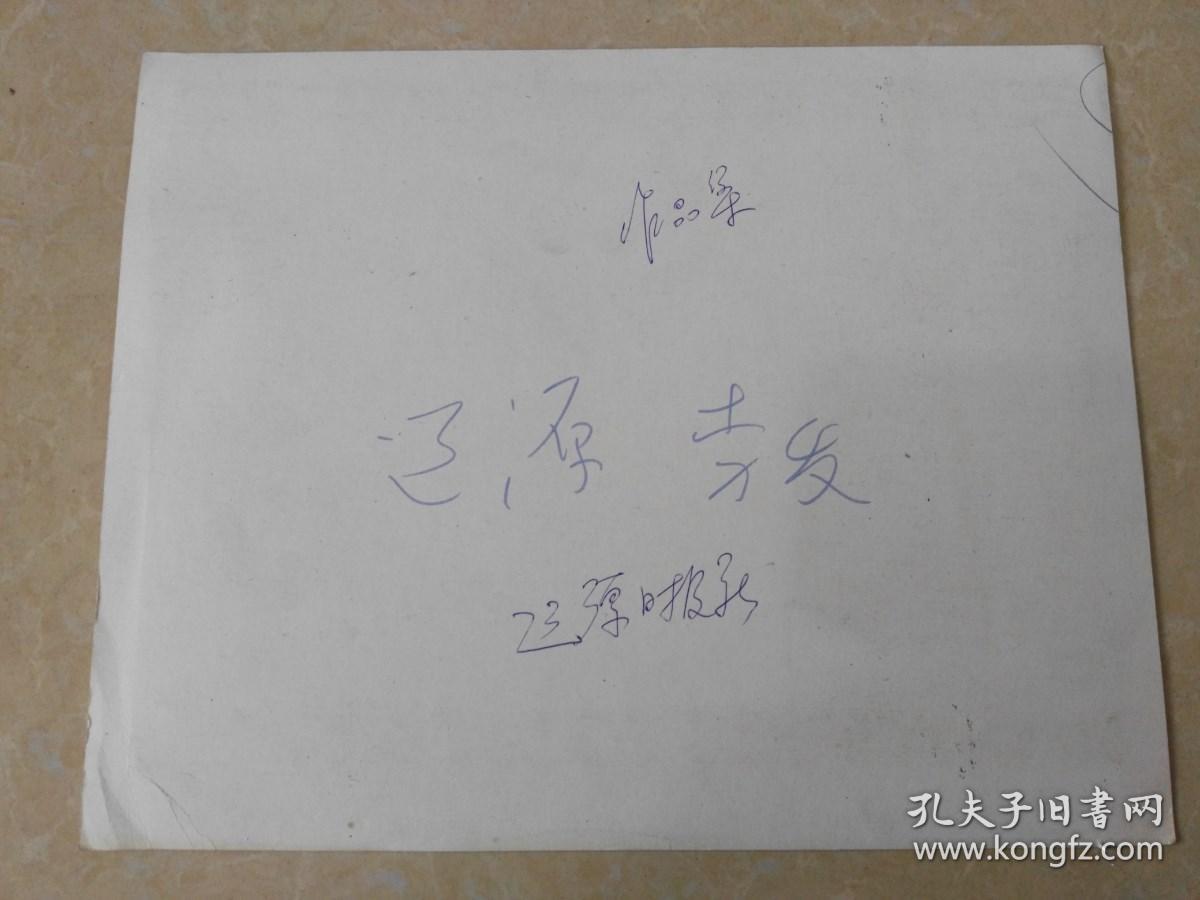 作品集
辽源 李发
辽源日报社
孔夫子旧書网
www.kongfz.com